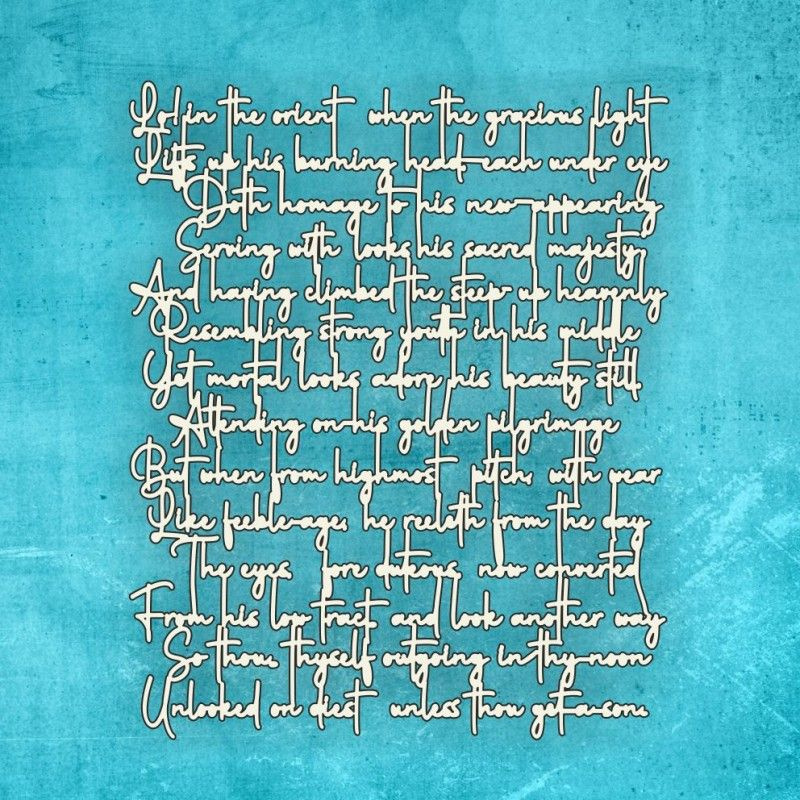 Lo! in the orient when the gracious light
Lifts up his burning head each under eye
Doth homage to his new-appearing
Serving with looks his sacred majesty,
And having climbed the steep-up heavenly
Resembling strong youth in his middle
Yet mortal looks adore his beauty still,
Attending on his golden pilgrimage
But when from highmost pitch, with wear
Like feeble age, he reeleth from the day
The eyes, fore duteous, now converted
From his low tract, and look another way
So thou, thyself outgoing in thy noon
Unlooked on diest unless thou get a son.